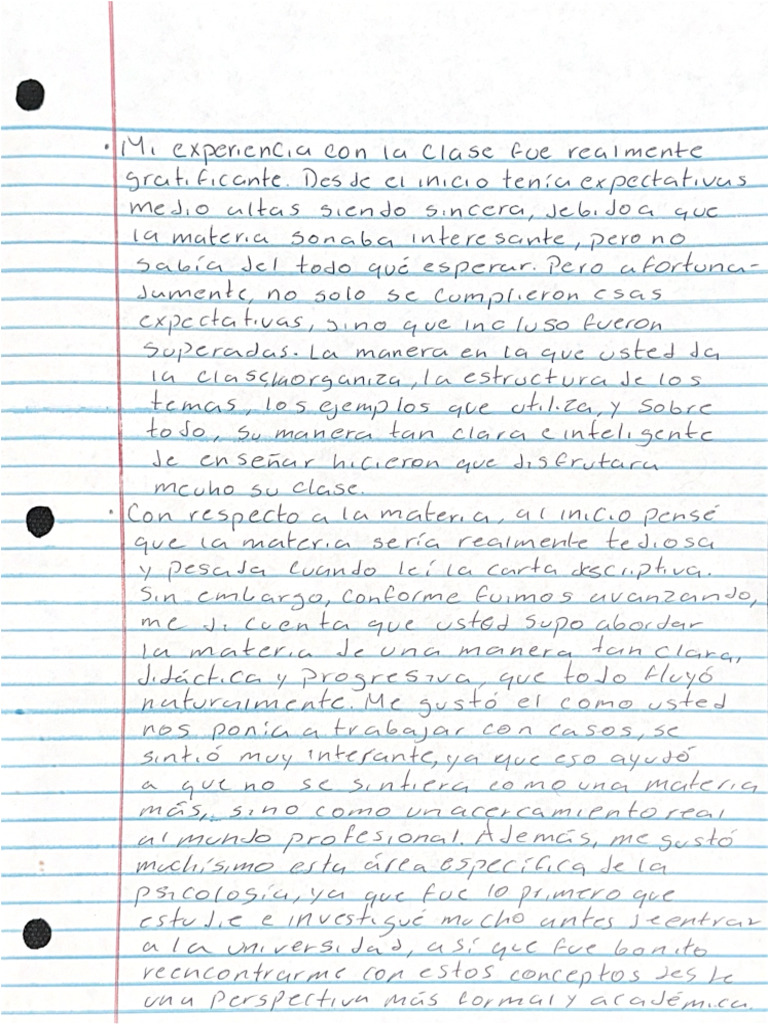 · Mi experiencia con la clase fue realmente
gratificante. Desde el inicio tenía expectativas
medio altas siendo sincera, debido a que
la materia sonaba interesante, pero no
sabía del todo qué esperar. Pero afortuna-
damente, no solo se cumplieron esas
expectativas, sino que incluso fueron
superadas. La manera en la que usted da
la clase, la organiza, la estructura de los
temas, los ejemplos que utiliza, y sobre
todo, su manera tan clara e inteligente
de enseñar hicieron que disfrutara
mcuho su clase.
· Con respecto a la materia, al inicio pensé
que la materia sería realmente tediosa
y pesada cuando leí la carta descriptiva.
Sin embargo, conforme fuimos avanzando,
me di cuenta que usted supo abordar
la materia de una manera tan clara,
didáctica y progresiva, que todo fluyó
naturalmente. Me gustó el como usted
nos ponía a trabajar con casos, se
sintió muy intersante, ya que eso ayudó
a que no se sintiera como una materia
más, sino como un acercamiento real
al mundo profesional. Además, me gustó
muchísimo esta área específica de la
psicología, ya que fue lo primero que
estudie e investigué mucho antes de entrar
a la universidad, así que fue bonito
reencontrarme con estos conceptos desde
una perspectiva más formal y académica.